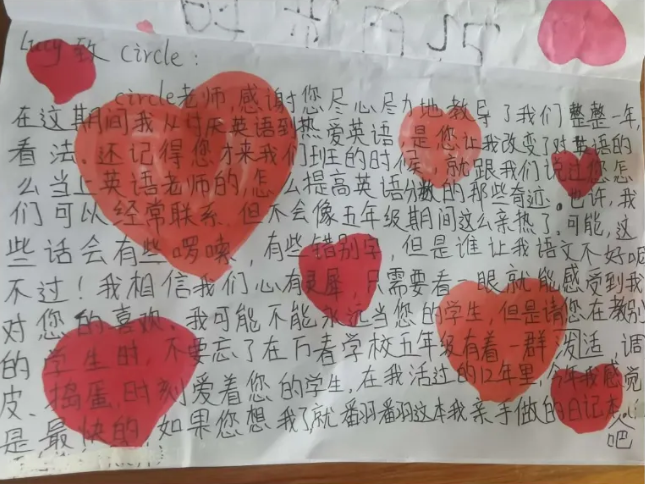 Lucy 致 Circle:
circle老师,感谢您尽心尽力地教导了我们整整一年,
在这期间我从讨厌英语到热爱英语,是您让我改变了对英语的
看法.还记得您才来我们班的时候,就跟我们说过您怎
么当上英语老师的怎么提高英语分数的那些奇迹。也许,我
们可以经常联系,但不会像五年级期间这么亲热了。可能,这
些话会有些啰嗦,有些错别字,但是谁让我语文不好呢
不过!我相信我们心有灵犀,只需要看一眼就能感受到我
对您的喜欢,我可能不能永远当您的学生,但是请您在教别
的学生时,不要忘了在万春学校五年级有着一群活泼,调
皮、捣蛋,时刻爱着您的学生,在我活过的12年里,今年我感觉
是最快的,如果您想我了就翻翻这本我亲手做的日记本
吧